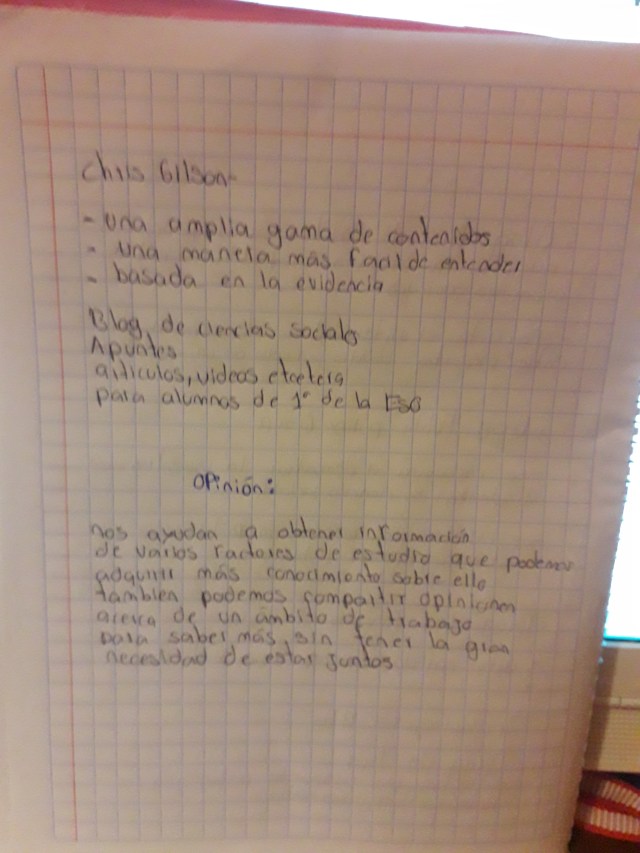 Chris Gilson-
- una amplia gama de contenidos
- una manera más facil de entender
- basada en la evidencia
Blog de ciencias sociales
Apuntes
articulos, videos etcetera
para alumnos de 1° de la ESO
OPinión:
nos ayudan a obtener información
de varios factores de estudio que podemos
adquirir más conocimiento sobre ello
tambien podemos compartir opiniones
acerca de un ámbito de trabajo
para saber más, sin tener la gran
necesidad de estar juntos